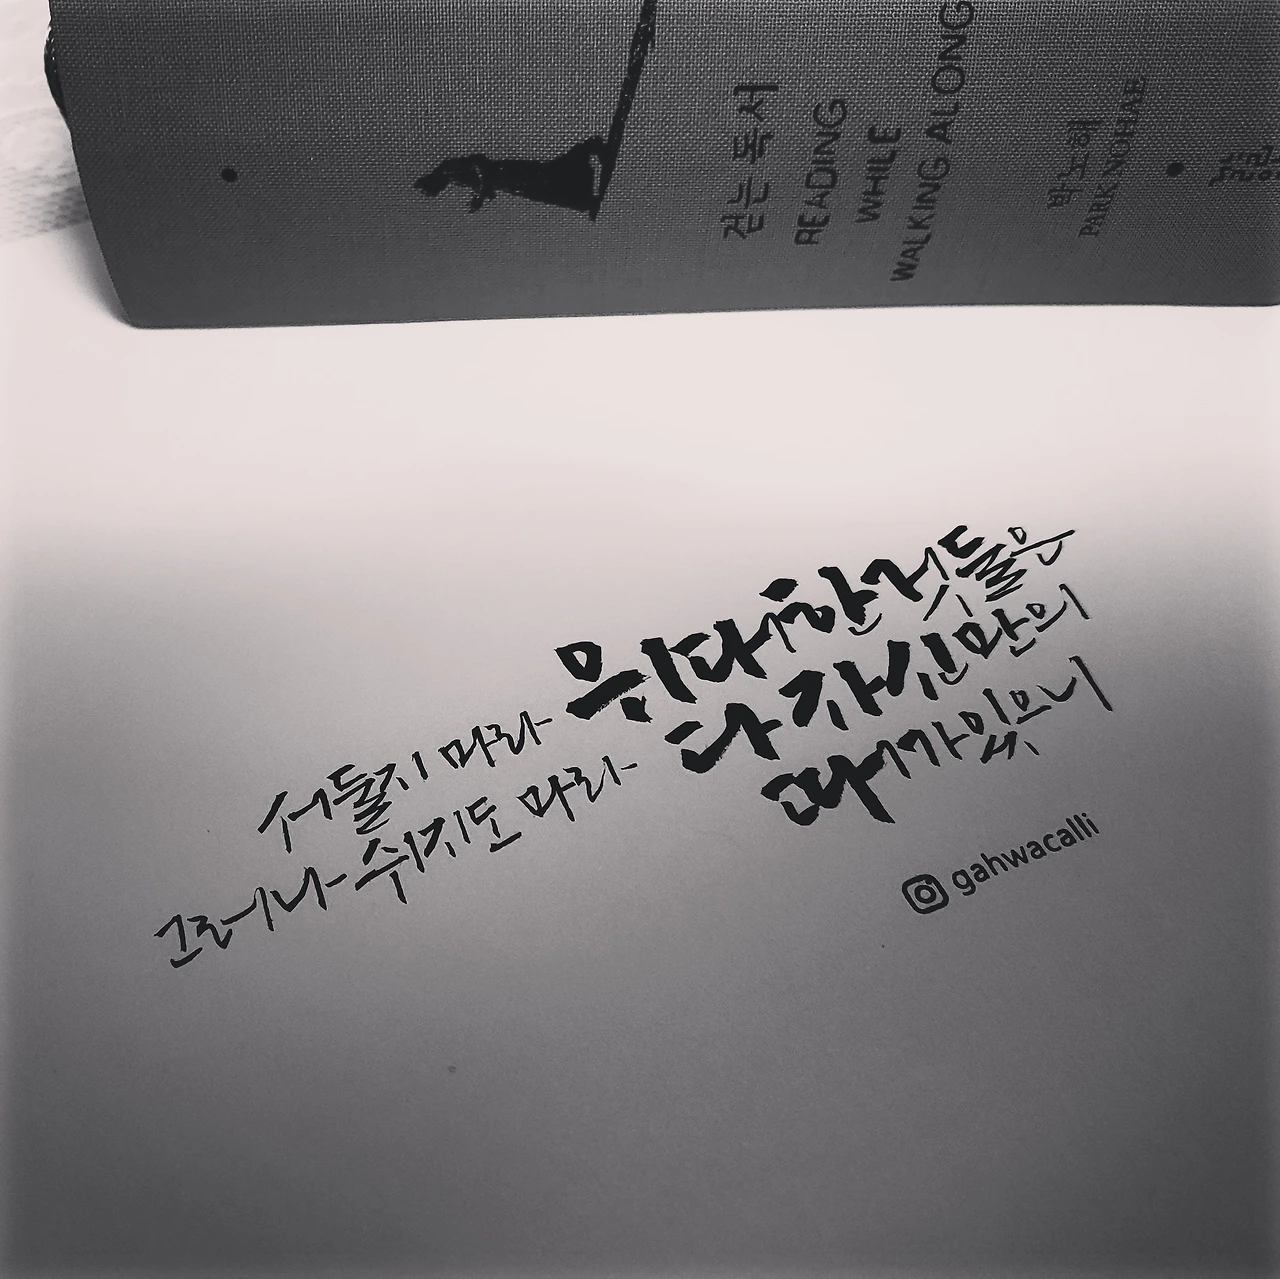 걷는 독서
READING
WHILE
WALKING ALONG
박노해
PARK NOHAE
서둘지 마라
그러나 쉬지도 마라
위대한것들은
다 자신만의
때가있으니
gahwacalli